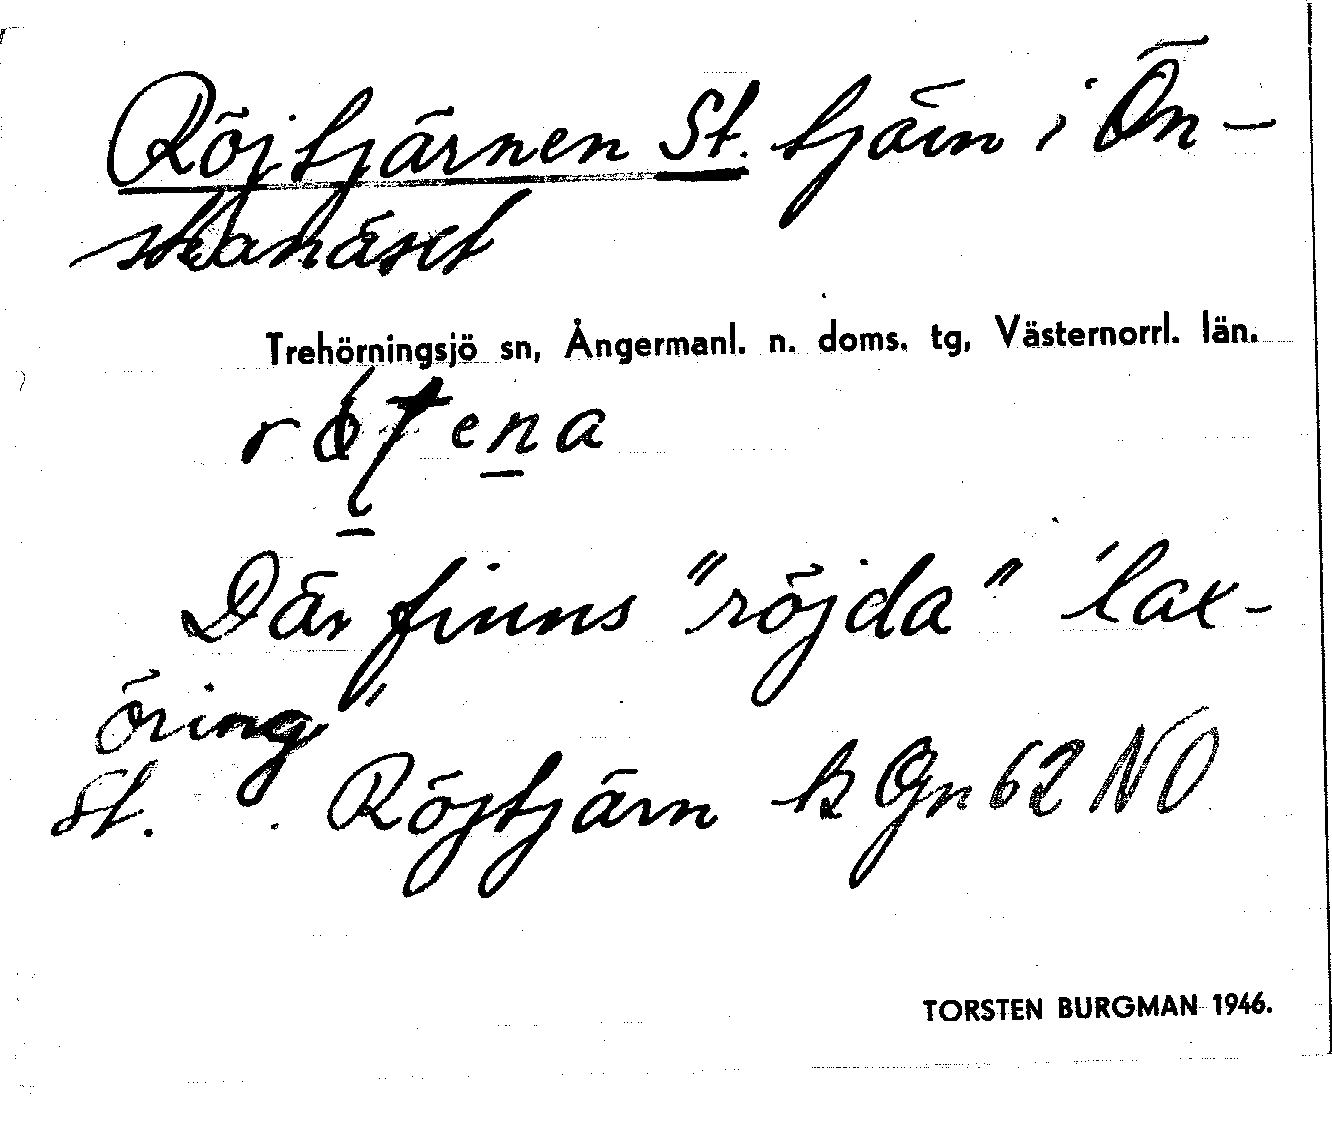 Röjtjärnen St. tjärn i Ön-
skanäset
Trehörningsjö sn, Ångermanl. n. doms. tg, Västernorrl. län.
Där finns "röjda" "lax-
öring"
St. Röjtjärn k Gn 62 NO
TORSTEN BURGMAN 1946.